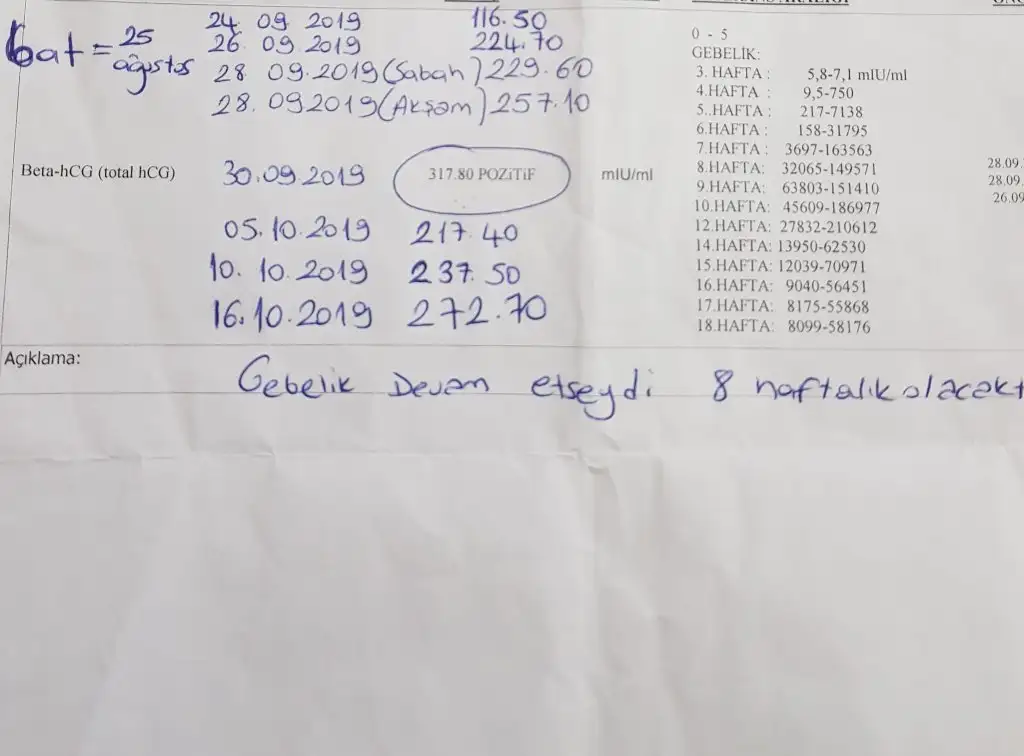 bat = 25 ağustos
24. 09 2019 116.50
26. 09 2019 224.70
28. 09.2019 (Sabah) 229.60
28. 09 2019 (Akşam) 257.10
0 - 5
GEBELİK:
3. HAFTA : 5,8-7,1 mIU/ml
4.HAFTA : 9,5-750
5..HAFTA : 217-7138
6.HAFTA : 158-31795
7.HAFTA : 3697-163563
8.HAFTA: 32065-149571
9.HAFTA: 63803-151410
10.HAFTA: 45609-186977
12.HAFTA: 27832-210612
14.HAFTA: 13950-62530
15.HAFTA: 12039-70971
16.HAFTA: 9040-56451
17.HAFTA: 8175-55868
18.HAFTA: 8099-58176
28.09.
28.09.
26.09
Beta-hCG (total hCG) 30.09.2019 317.80 POZİTİF mIU/ml
05.10.2019 217.40
10. 10. 2019 237.50
16.10.2019 272.70
Açıklama:
Gebelik Devam etseydi 8 haftalık olacakt